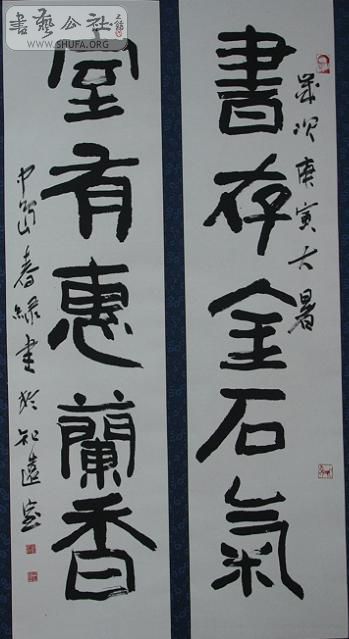 書存金石氣
歲次庚寅大暑
室有惠蘭香
春緑書於知遠室
書藝公社
WWW.SHUFA.ORG